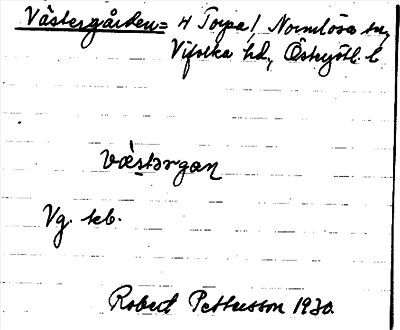 Västergården = 4 Torpa, Normlösa sn,
Vifolka hd, Östergötl. l
væ̀stərgan
Vg. tcb.
Robert Pettersson 1930.